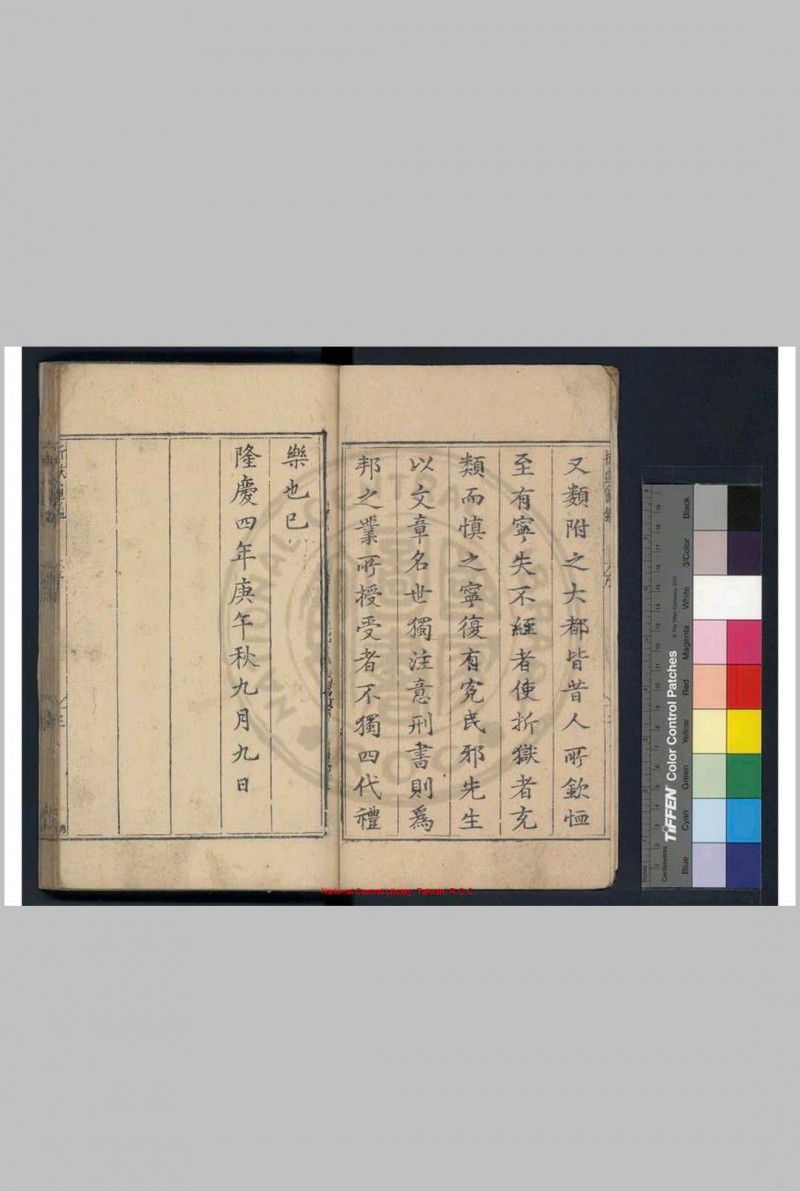 又類附之大都皆昔人所欽恤
至有寧失不經者使折獄者充
類而慎之寧復有寃民邪先生
以文章名世獨注意刑書則爲
邦之業所授受者不獨四代禮
樂也已
隆慶四年庚午秋九月九日
Black
3/Color
White
Magenta
Red
Yellow
Green
Cyan
Blue
TIFFEN Color Control Patches